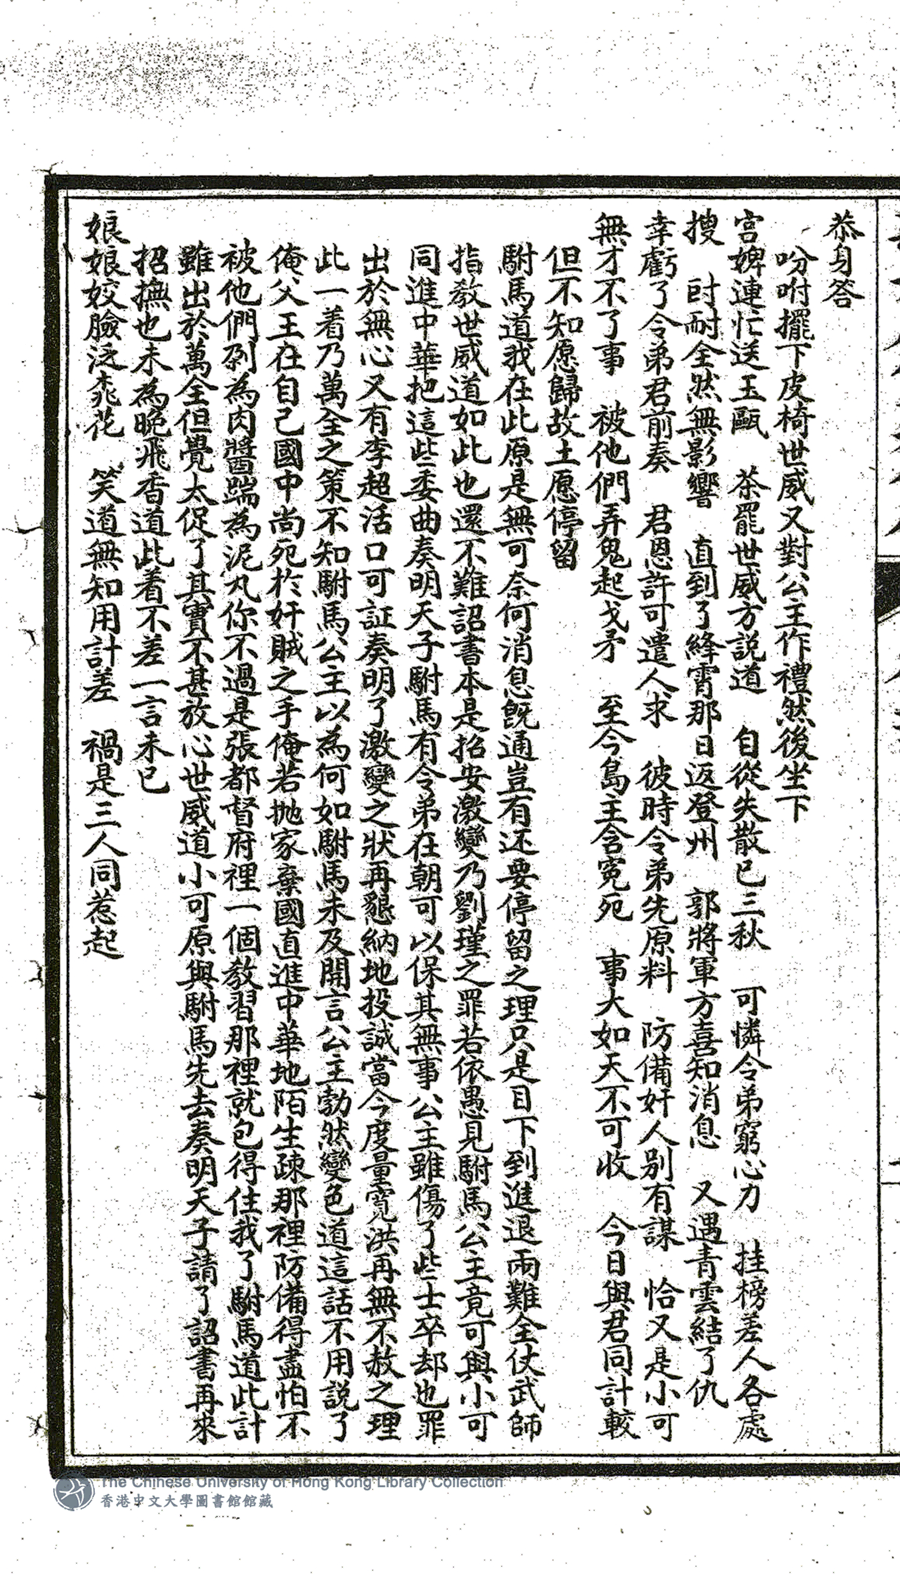 恭身答
吩咐擺下皮椅世威又對公主作禮然後坐下
宮婢連忙送玉甌　茶罷世威方說道　自從失散已三秋　可憐令弟窮心力　挂榜差人各處
搜　时耐全然無影響　直到了絳霄那日返登州　郭將軍方喜知消息　又遇青雲結了仇
幸虧了令弟君前奏　君恩許可遣人求　彼時令弟先原料　防備奸人別有謀　恰又是小可
無才不了事　被他們弄鬼起戈矛　至今島主含冤死　事大如天不可收　今日與君同計較
但不知愿歸故土愿停留
駙馬道我在此原是無可奈何消息旣通豈有还要停留之理只是目下到進退兩難全仗武師
指教世威道如此也還不難詔書本是招安激變乃劉瑾之罪若依愚見駙馬公主竟可與小可
同進中華把這些委曲奏明天子駙馬有令弟在朝可以保其無事公主雖傷了些士卒却也罪
出於無心又有李超活口可証奏明了激變之狀再懇納地投誠當今度量寬洪再無不赦之理
此一着乃萬全之策不知駙馬公主以為何如駙馬未及開言公主勃然變色道這話不用說了
俺父王在自己國中尚死於奸賊之手俺若拋家棄國直進中華地陌生疎那裡防備得盡怕不
被他們剁為肉醬踹為泥丸你不過是張都督府裡一個教習那裡就包得住我了駙馬道此計
雖出於萬全但覺太促了其實不甚放心世威道小可原與駙馬先去奏明天子請了詔書再來
招撫也未為晚飛香道此着不差一言未已
娘娘姣臉泛桃花　笑道無知用計差　禍是三人同惹起
The Chinese University of Hong Kong Library Collection
香港中文大學圖書館館藏